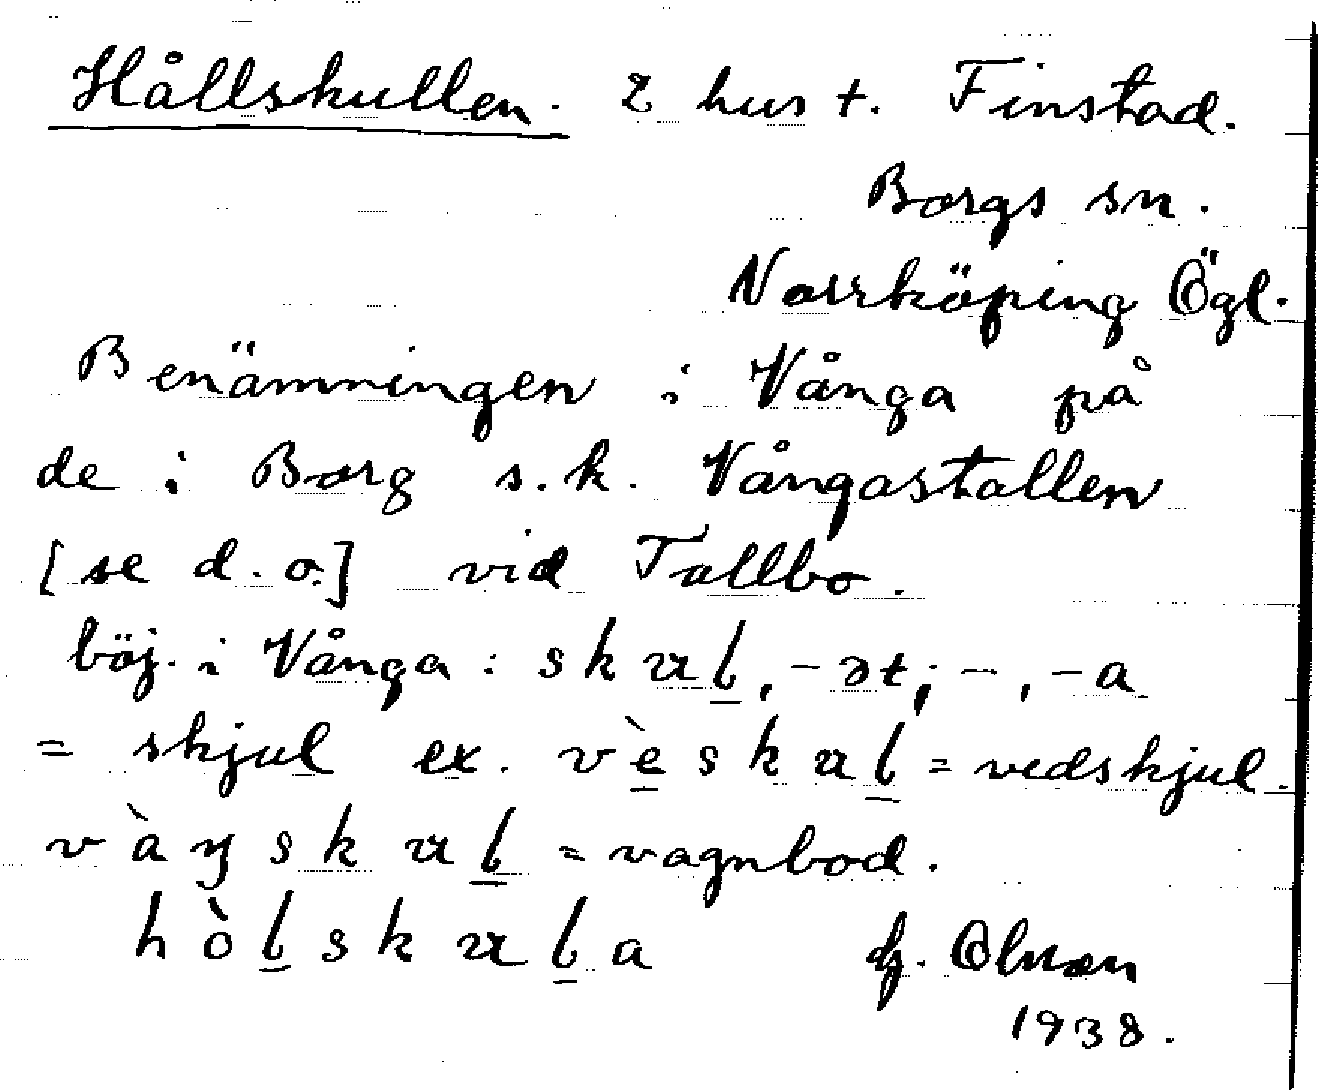 Hållskullen. 2 hus t. Finstad.
Borgs sn.
Norrköping Ögl.
Benämningen i Vånga på
de i Borg s.k. Vångastallen
[se d.o.] vid Tallbo.
böj. i Vånga: skuɭ, -ət; -, -a
= skjul ex. vèskuɭ = vedskjul.
vàŋskuɭ = vagnbod.
hòɭskuɭa
1938.